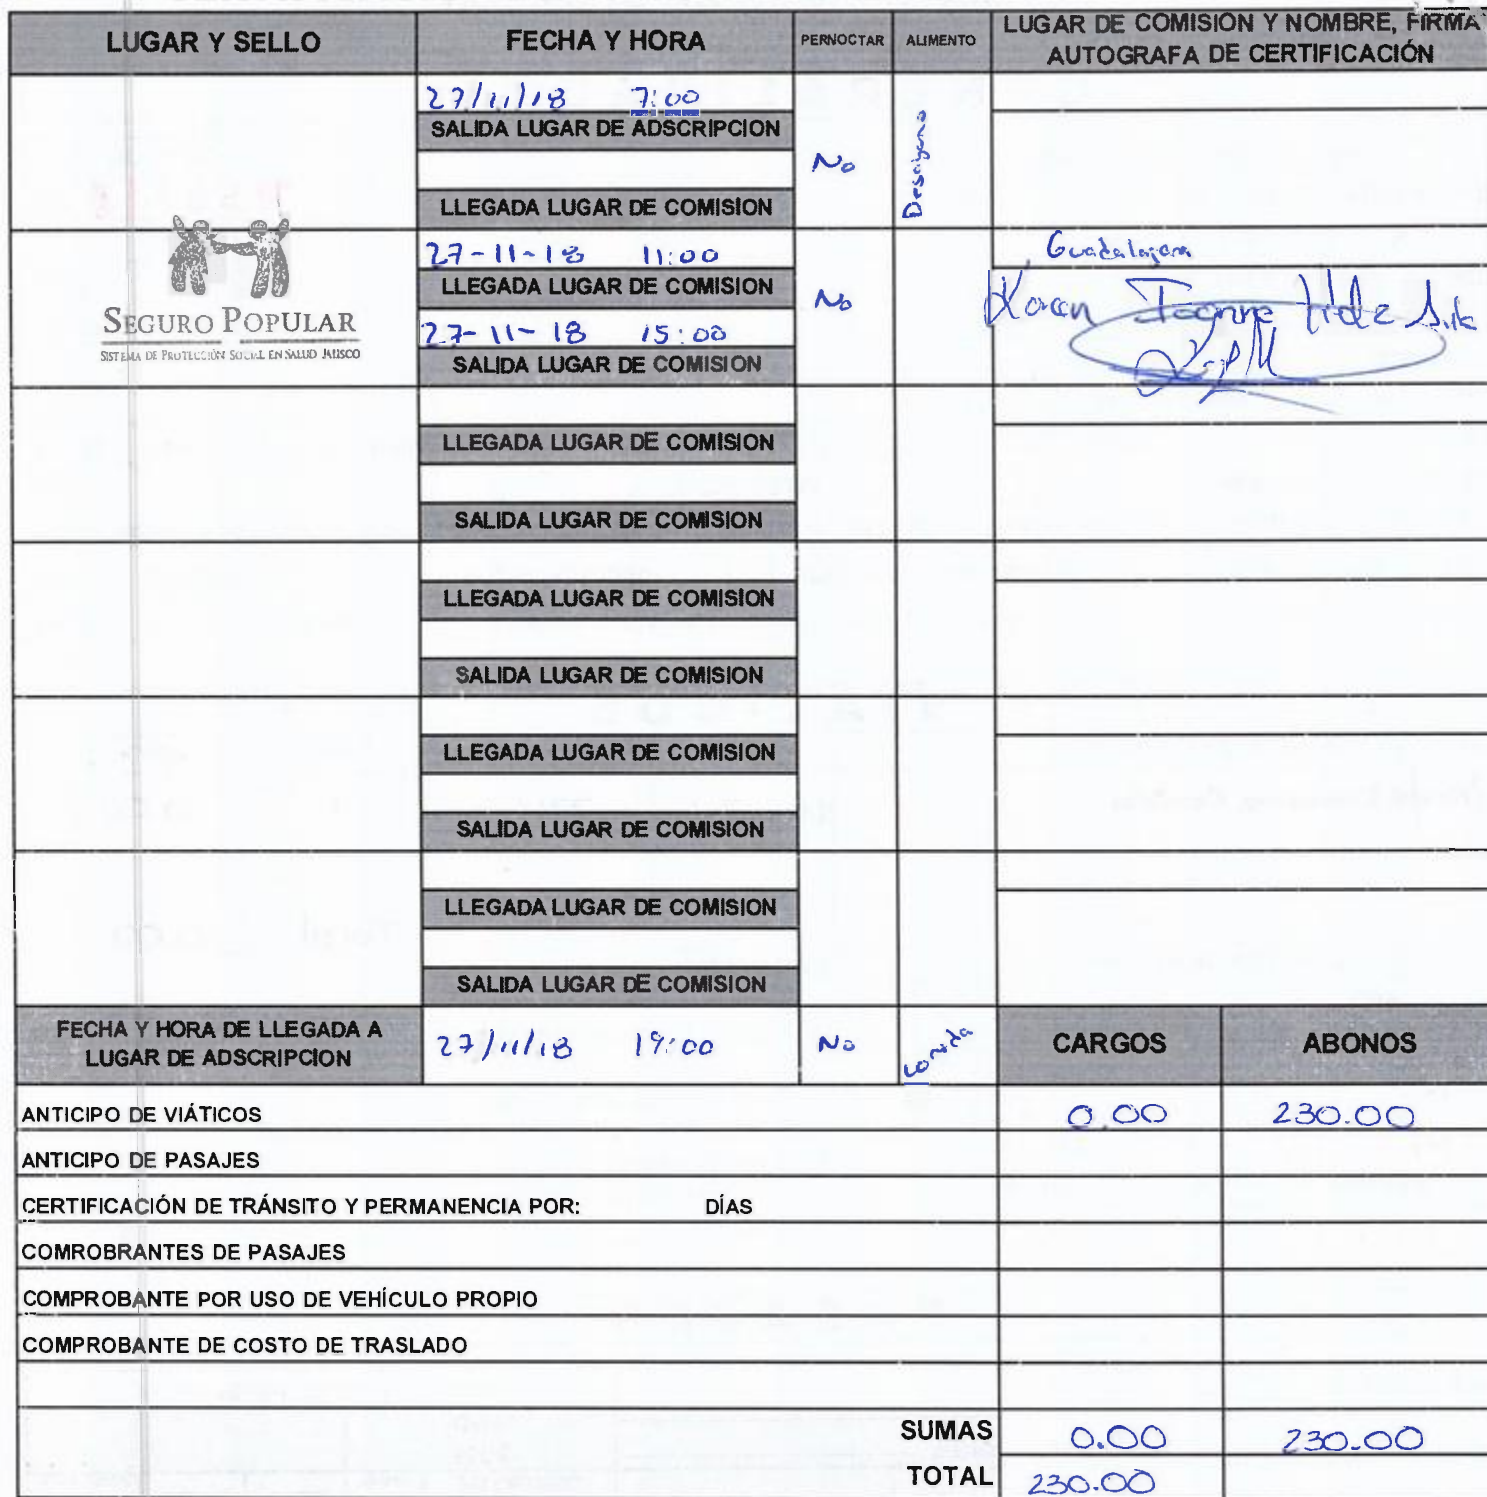 LUGAR Y SELLO
FECHA Y HORA
PERNOCTAR
ALIMENTO
LUGAR DE COMISION Y NOMBRE, FIRMA
AUTOGRAFA DE CERTIFICACIÓN
27/11/18 7:00
SALIDA LUGAR DE ADSCRIPCION
No
Desayuno
LLEGADA LUGAR DE COMISION
27-11-18 11:00
LLEGADA LUGAR DE COMISION
No
Guadalajara
Karen
27-11-18 15:00
SALIDA LUGAR DE COMISION
SEGURO POPULAR
SISTEMA DE PROTECCIÓN SOCIAL EN SALUD JALISCO
LLEGADA LUGAR DE COMISION
SALIDA LUGAR DE COMISION
LLEGADA LUGAR DE COMISION
SALIDA LUGAR DE COMISION
LLEGADA LUGAR DE COMISION
SALIDA LUGAR DE COMISION
LLEGADA LUGAR DE COMISION
SALIDA LUGAR DE COMISION
FECHA Y HORA DE LLEGADA A
LUGAR DE ADSCRIPCION
27/11/18 19:00
No
Comida
CARGOS
ABONOS
ANTICIPO DE VIÁTICOS 0.00 230.00
ANTICIPO DE PASAJES
CERTIFICACIÓN DE TRÁNSITO Y PERMANENCIA POR: DÍAS
COMROBRANTES DE PASAJES
COMPROBANTE POR USO DE VEHÍCULO PROPIO
COMPROBANTE DE COSTO DE TRASLADO
SUMAS 0.00 230.00
TOTAL 230.00